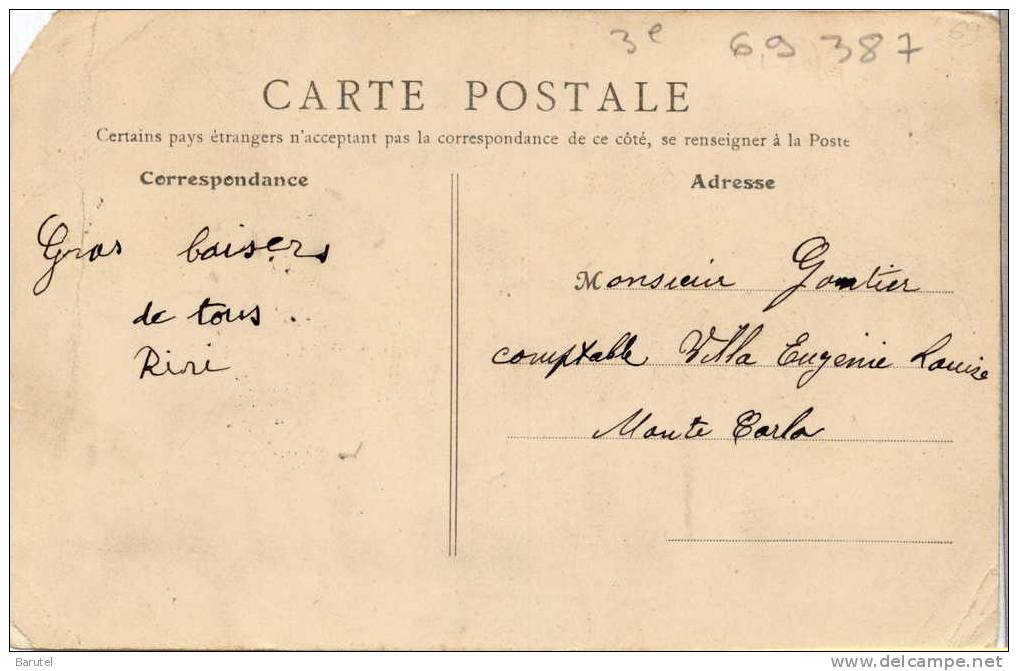 3e 69 387
59
CARTE POSTALE
Certains pays étrangers n'acceptant pas la correspondance de ce côté, se renseigner à la Poste
Correspondance
Gros baisers
de tous.
Riri
Adresse
Monsieur Gontier
comptable Villa Eugenie Louise
Monte Carlo
Barutel
www.delcampe.net